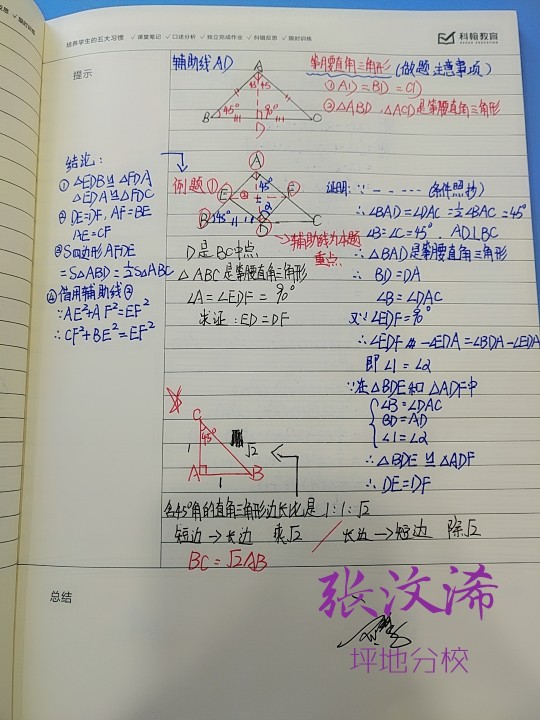 培养学生的五大习惯 ✓课堂笔记 ✓口述分析 ✓独立完成作业 ✓纠错反思 ✓限时训练
科翰教育
提示
辅助线AD
等腰直角三角形 (做题注意事项)
①AD=BD=CD
②△ABD、△ACD是等腰直角三角形
A
45 45
B 45° 90° C
D
结论:
①△EDB≌△FDA
△EDA≌△FDC
②DE=DF, AF=BE
AE=CF
③S四边形AFDE
=S△ABD=½S△ABC
④借用辅助线②
∵AE²+AF²=EF²
∴CF²+BE²=EF²
例题①
A
45°
E
B 45° D C
→辅助线为本题
重点
D是BC中点
△ABC是等腰直角三角形
∠A=∠EDF=90°
求证:ED=DF
证明:∵----(条件照抄)
∴∠BAD=∠DAC=½∠BAC=45°
∠B=∠C=45°、AD⊥BC
∴△BAD是等腰直角三角形
∴BD=DA
∠B=∠DAC
又∵∠EDF=90°
∴∠EDF-∠EDA=∠BDA-∠EDA
即∠1=∠2
∵在△BDE和△ADF中
∠B=∠DAC
BD=AD
∠1=∠2
∴△BDE≌△ADF
∴DE=DF
C
45°
1 √2
A B
1
含45°角的直角三角形边长比是1:1:√2
短边→长边 乘√2 / 长边→短边 除√2
BC=√2AB
总结
张汶浠
坪地分校